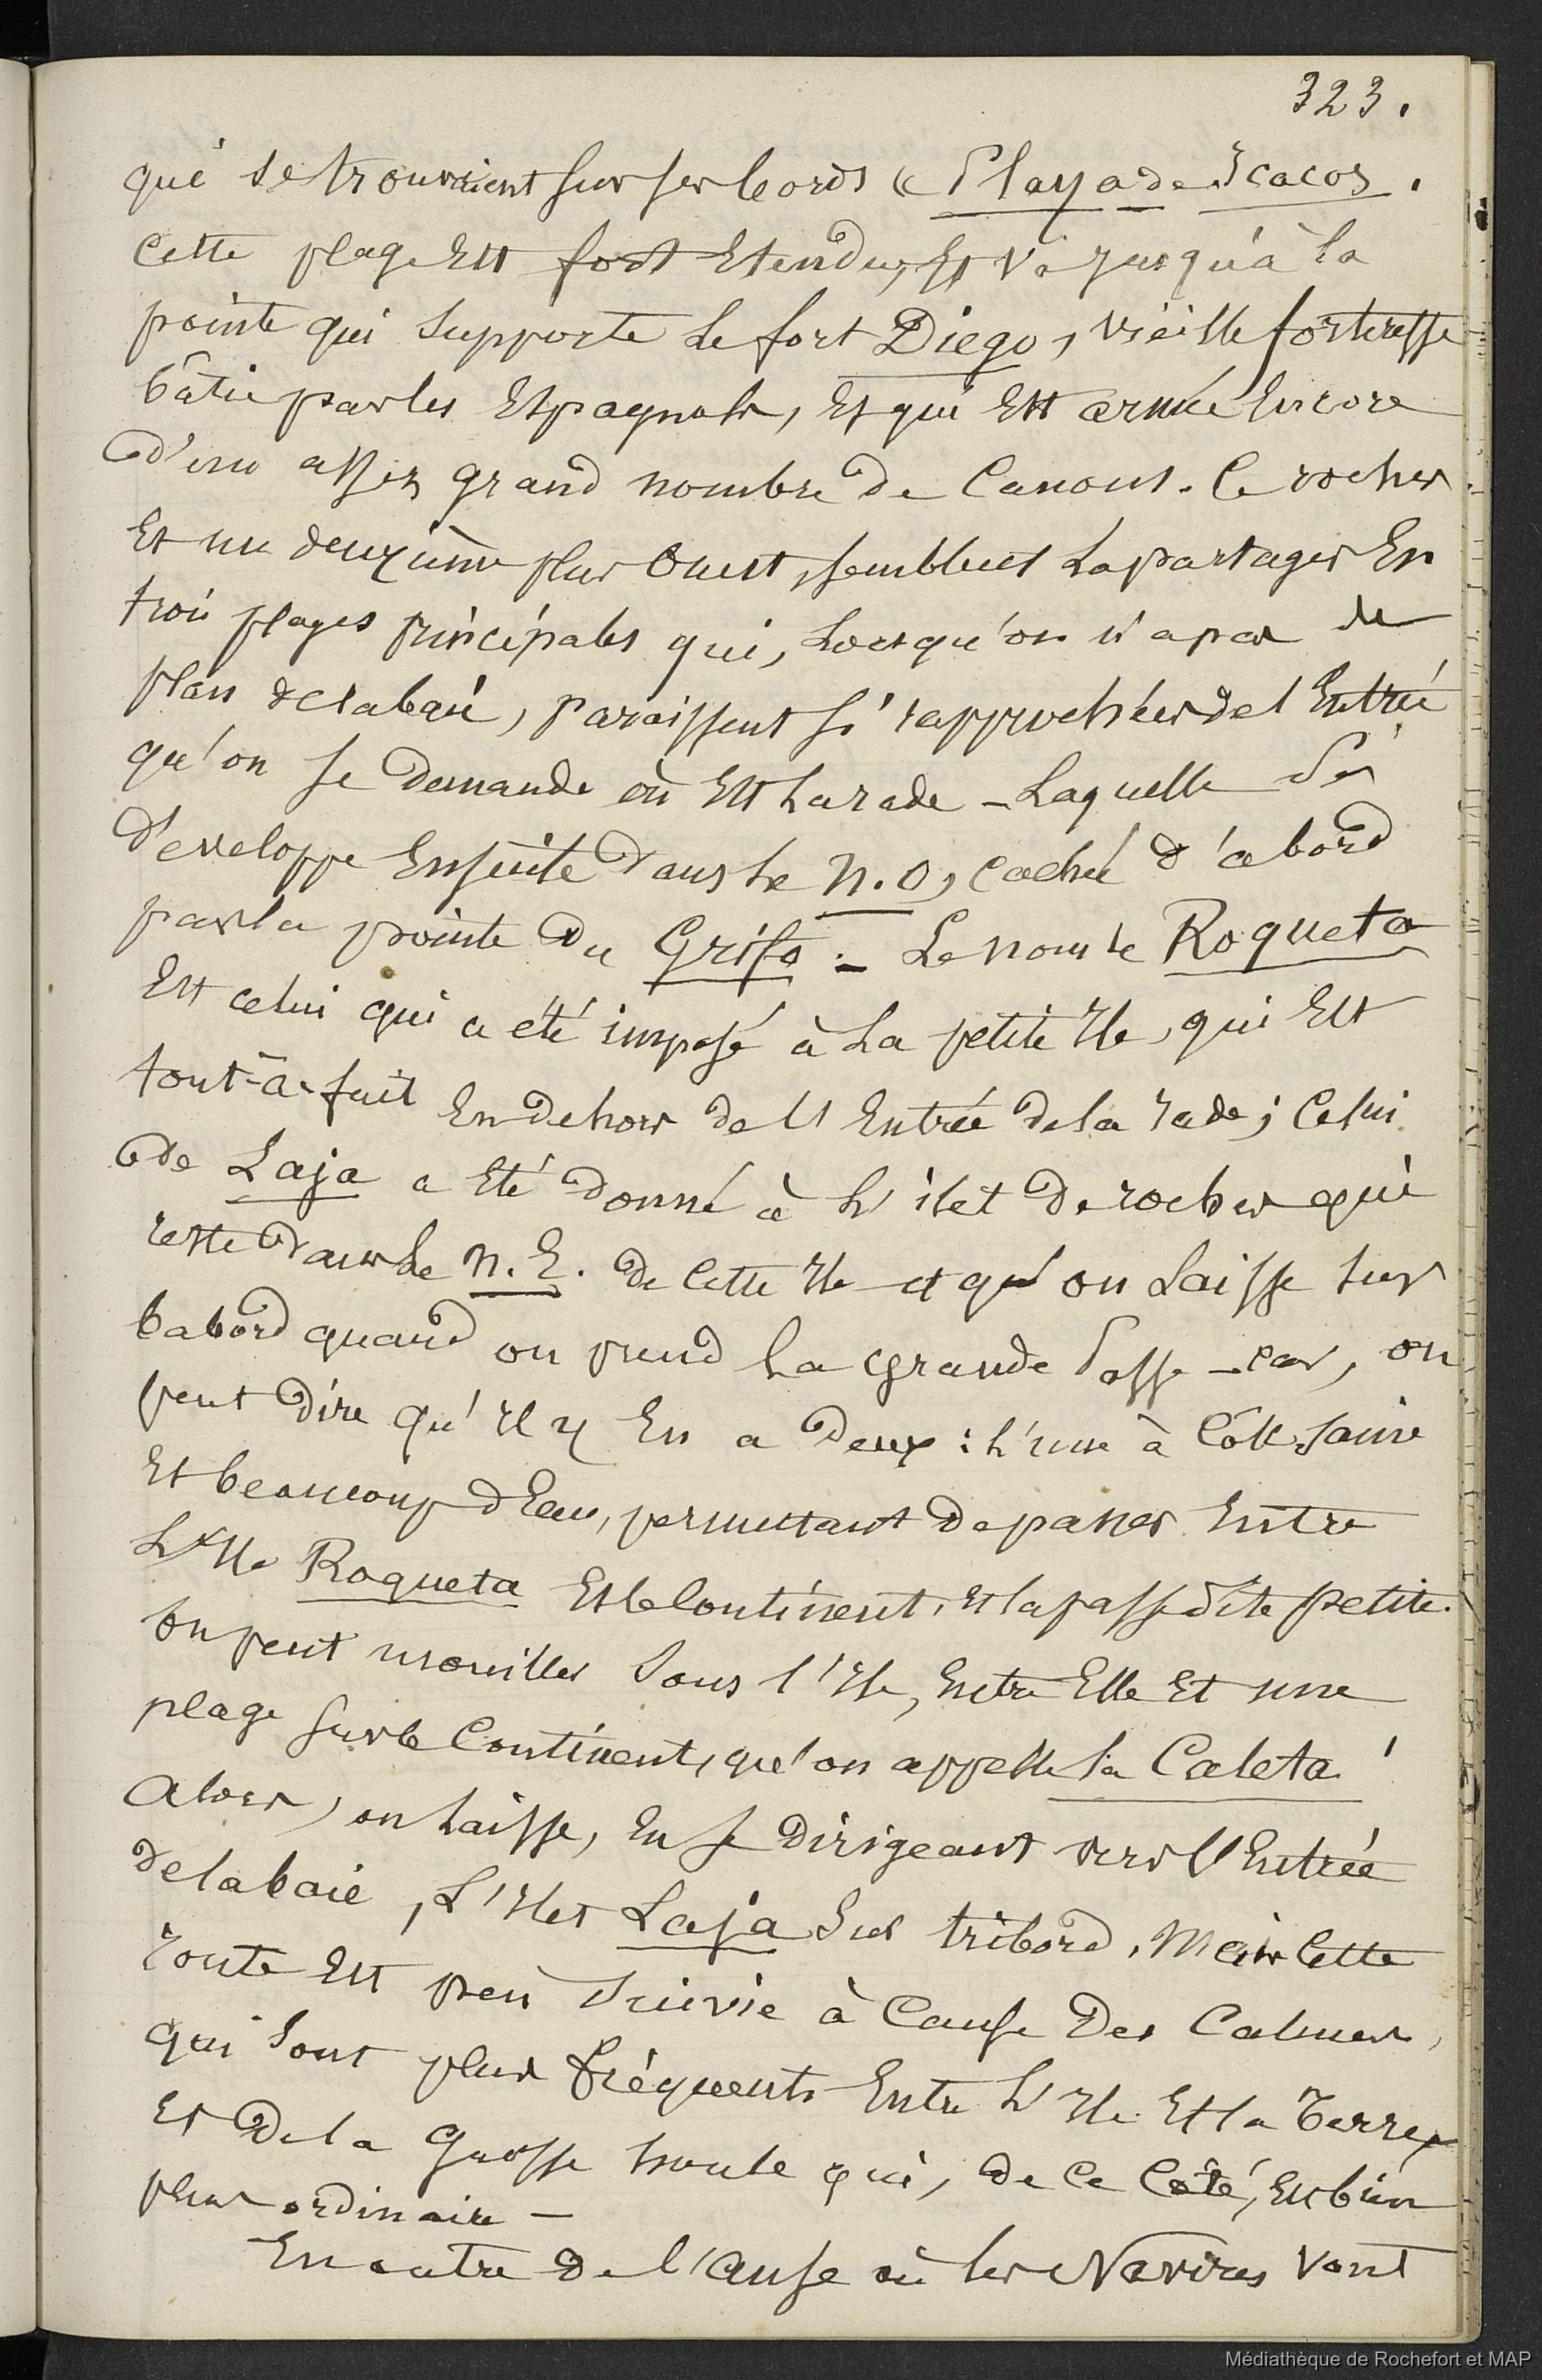 323.
qui se trouvaient sur ses bords « Playa de Icacos.
Cette plage Est fort Etendue, Et va jusqu'à la
pointe qui supporte le fort Diego, vieille forteresse
bâtie par les Espagnols, Et qui Est armée Encore
d'un assez grand nombre de Canons. Ce rocher
Et un deuxième plus Ouest, semblent la partager En
trois plages principales qui, Lorsqu'on n'a pas de
plan de la baie, paraissent si rapprochées de l'Entrée
qu'on se demande où Est La rade - Laquelle se
développe Ensuite dans le N.O, cachée d'abord
par la pointe du Grifo. - Le nom de Roqueta
Est celui qui a été imposé à La petite Ile, qui Est
tout-à-fait En dehors de l'Entrée de la rade; Celui
de Laja a Eté donné à L'ilet de roches qui
reste dans Le N.E. de Cette Ile et qu'on Laisse sur
babord quand on prend La grande Passe - car, on
peut dire qu'Il y En a deux: L'une à Côte saine
Et beaucoup d'Eau, permettant de passer Entre
L'Ile Roqueta Et le Continent, Et la passe dite petite.
On peut mouiller sous l'Ile, Entre Elle Et une
plage sur le Continent, qu'on appelle la Caleta!
Alors, on Laisse, En se dirigeant vers l'Entrée
de la baie, L'Ilet Laja sur tribord. Mais Cette
route Est peu suivie à Cause Des Calmes,
qui sont plus fréquents Entre L'Ile Et la Terre,
Et de la Grosse houle qui, de Ce Côté, Est bien
plus ordinaire -
En outre de l'anse où les Navires vont
Médiathèque de Rochefort et MAP